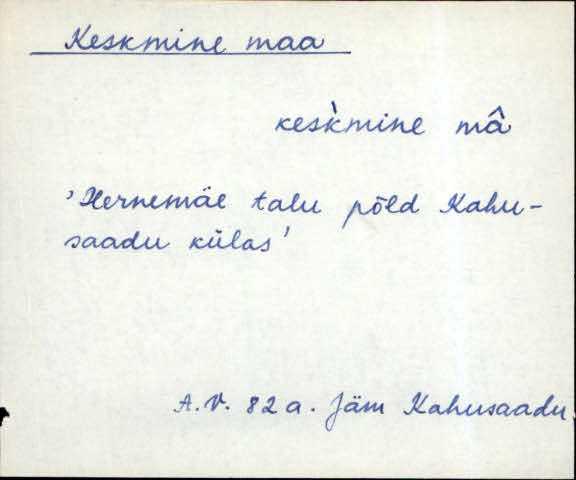 Keskmine maa
kes̀kmine mâ
'Hernemäe talu põld Kahu-
saadu külas'
A.V. 82 a. Jäm Kahusaadu.